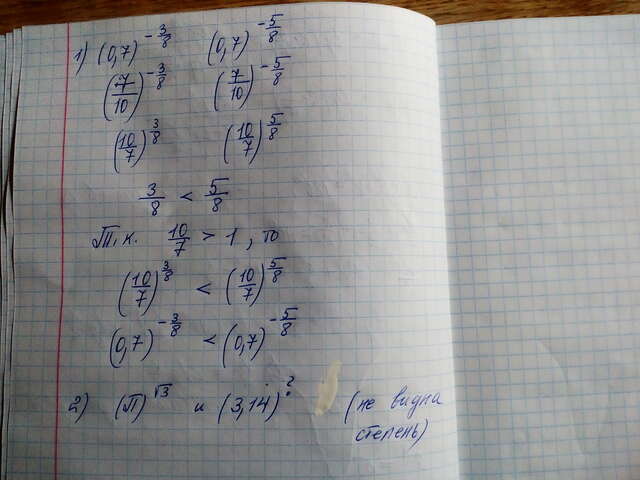 1) (0,7)^{-3/8} (0,7)^{-5/8}
(7/10)^{-3/8} (7/10)^{-5/8}
(10/7)^{3/8} (10/7)^{5/8}
3/8 < 5/8
Т.к. 10/7 > 1, то
(10/7)^{3/8} < (10/7)^{5/8}
(0,7)^{-3/8} < (0,7)^{-5/8}
2) (π)^{√3} и (3,14)^{?} (не видна
степень)